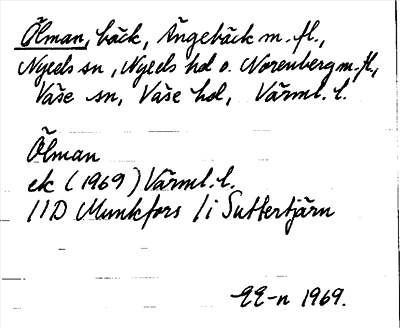 Ölman, bäck, Ängebäck m. fl.,
Nyeds sn, Nyeds hd o. Norenberg m. fl.,
Väse sn, Väse hd, Värml. l.
Ölman
ek (1969) Värml. l.
11D Munkfors / i Suttertjärn
EE-n 1969.